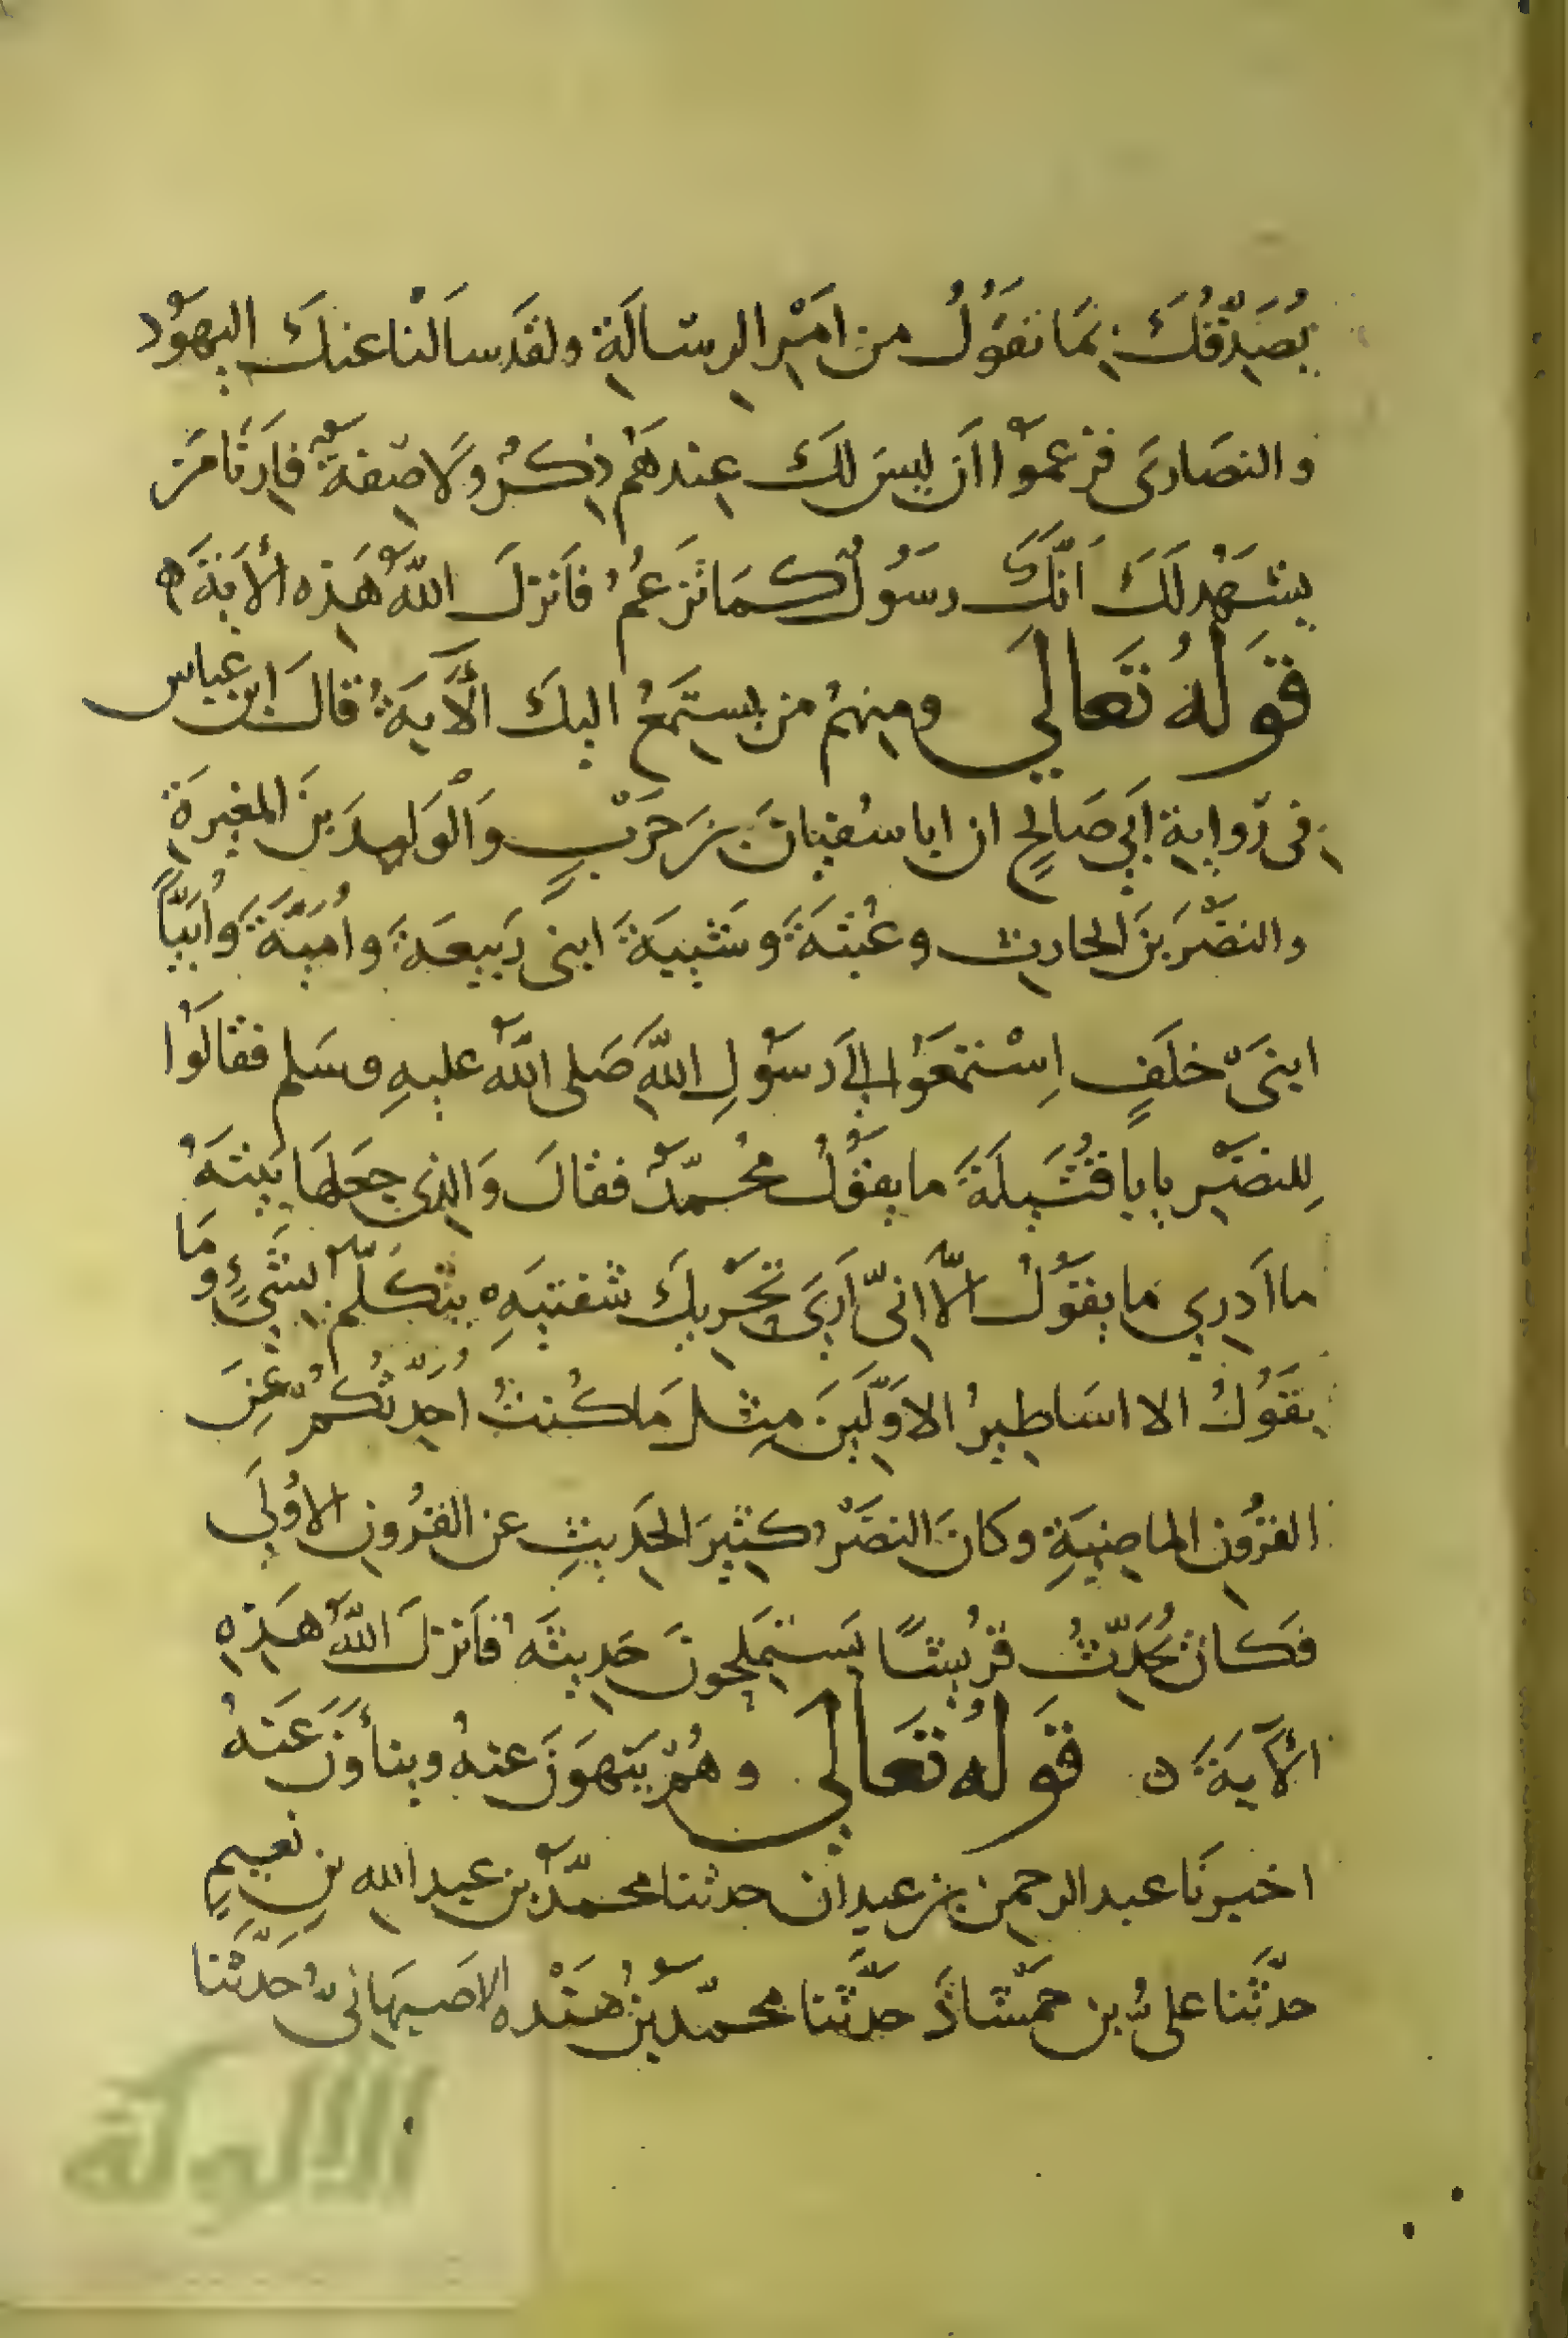 يُصَدِّقُكَ بِمَا تَقُوْلُ من اَمْرِ الرِسَالَةِ ولقَد سالْنا عنكَ اليهَوْد
والنصَارىَ فزعموْا اَن ليسَ لكَ عِندهَمُ ذِكرُ وَلا صِفةٌ فاَرِنَا مَن
يشهَدُ لَكَ اَنّكَ رسَوُلُ كمَا تَزعمُ فاَنزلَ اللّهُ هَذِه الأَيةَ ه
قوَلهُ تَعَالىَ ومِنهمُ من يستَمِعُ اليكَ الْآيَةُ قالَ ابن عباس
في رِوايةِ اَبي صَالحٍ ان ابا سفيانَ بنَ حَرْبٍ وَالْوَليدَ بنَ المغيرةِ
والنضْرَ بنَ الحارِث وعُتبَةَ وشَيبَةَ ابنى رَبيعَةَ واُميّةَ وَأُبيّاً
ابنىَّ خلَفٍ اِسْتمعَوُا الىَ رسَوْلِ اللهِ صَلى اللّهُ عليهِ وسَلم فقالَوُا
لِلنضْرِ يابَا قُتَيلَةَ ما يقَوُلُ محُمّدٌ فقالَ وَالذِي جعَلهَا بَيتهَُ
ما اَدرِي مَا يقوَلُ الّا انىِّ اَرَى تحَرّيكَ شفتيَهِ يتكَلّمُ بشَيءٍ وَمَا
يقَوُلُ الا اسَاطِيرُ الاوَّلَينَ مِثلَ مَا كُنتُ اُحَدِّثُكمُ عَنِ
القرُونِ الماضِيَةِ وكَانَ النضَرُ كثِيرَ الحَدِيثِ عن القرُونِ الاوُلَى
فكانَ يُحَدِّثُ قرُيشًا يَستمَلِحونَ حَدِيثَه فاَنزلَ اللّهُ هَذِهِ
الآيَةَ ه قوَلهُ تعَالَى وهُمْ يَنهَوَنَ عنهُ وينأَوْنَ عَنهُ
اخبرنَا عبد الرحمن بن عبدان حدثنا محمدّ بن عبد الله بنِ نعيمٍ
حدّثَنا علىُّ بن حَمّشاذَ حدَّثنا محمّد بنُ مَنْده الاصَبهَانىُّ حَدّثَنا
الألوكة